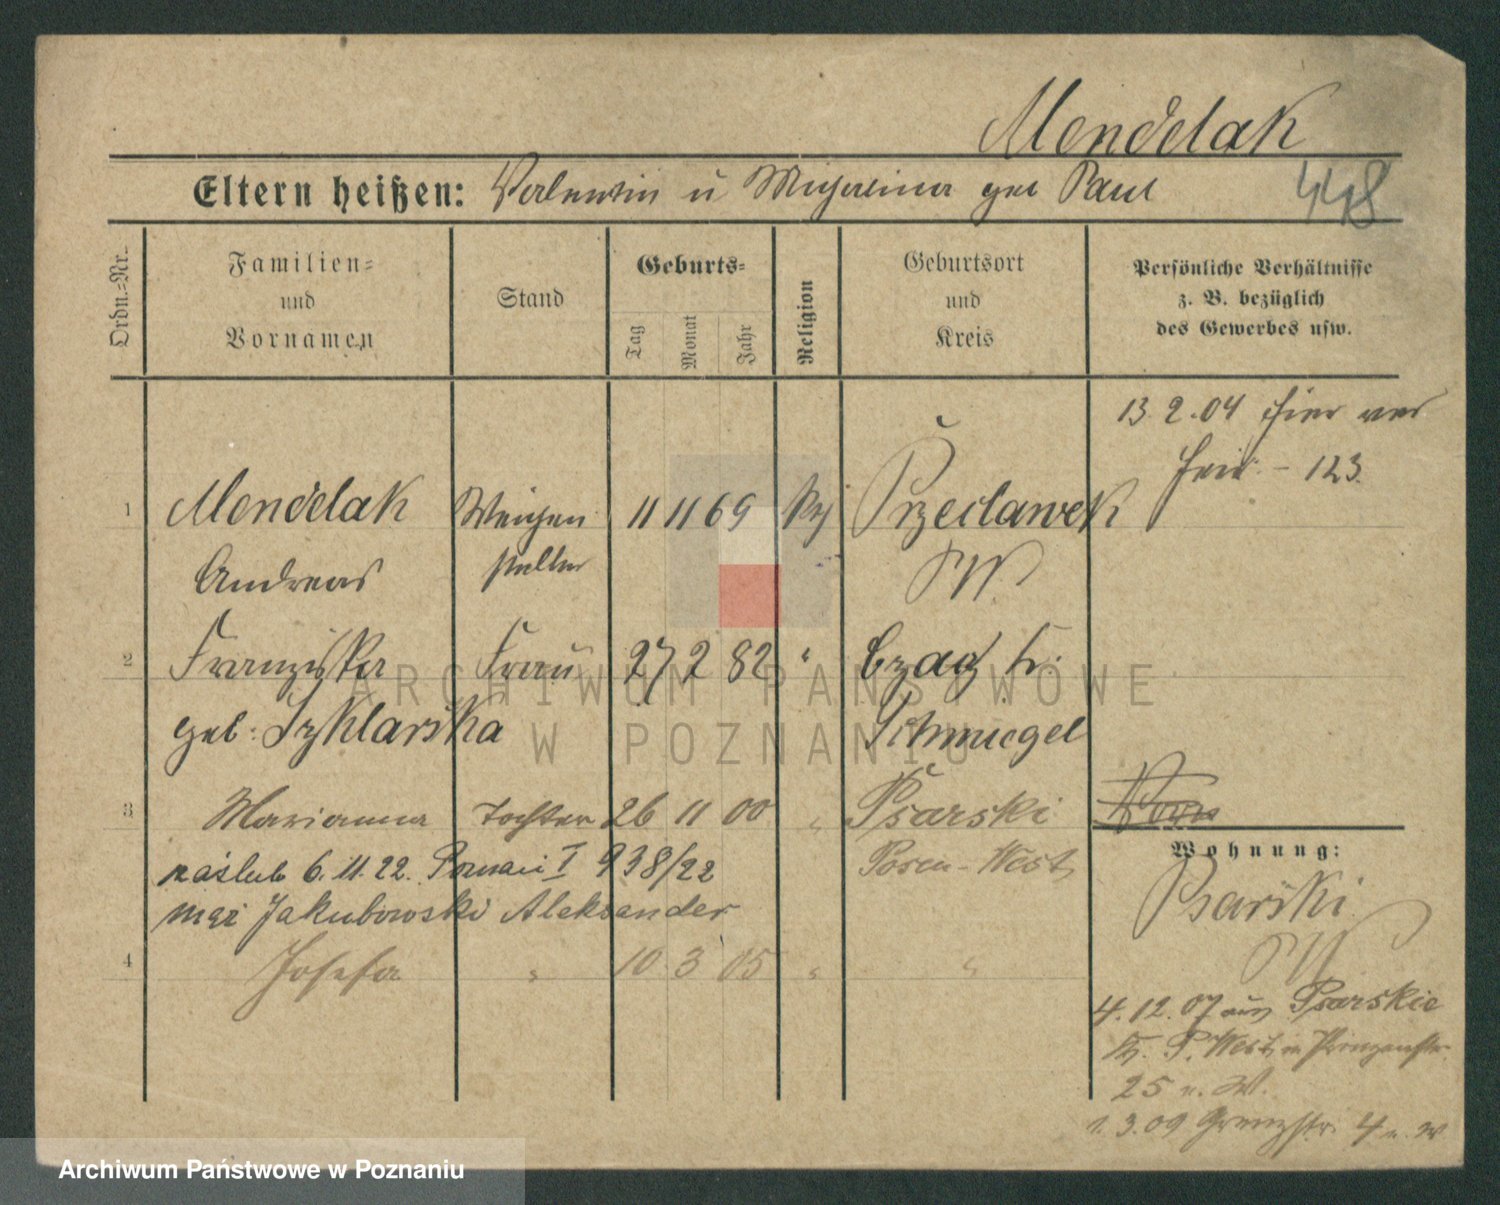 Mendelak
Eltern heißen: Valentin u geb Paul
448
Ordn.=Nr.
Familien=
und
Vornamen
Stand
Geburts=
Tag
Monat
Jahr
Religion
Geburtsort
und
Kreis
Persönliche Verhältnisse
z. B. bezüglich
des Gewerbes usw.
13.2.04 hier ver
heir. - 123.
1 Mendelak Weichen 11 11 69 Przeclawek
Andreas steller PW
2 Franziska Frau 27 2 82 " Czacz Kr.
geb. Szklarska Schmiegel
3 Marianna Tochter 26 11 00 " Psarski
Posen-West
zaślub 6.11.22. Poznań I 938/22
mąż Jakubowski Aleksander
4 Josefa " 10 3 05 " "
Wohnung:
Psarski
PW
4.12.07 aus Psarskie
Kr. P. West, n Prinzenstr.
25 n. W.
1.3.09 Grenzstr. 4 n. W
ARCHIWUM PAŃSTWOWE
W POZNANIU
Archiwum Państwowe w Poznaniu